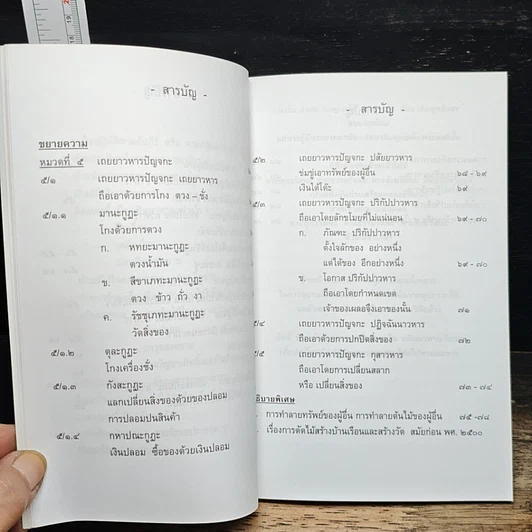 - สารบัญ -
ขยายความ
หมวดที่ ๕ เถยยาวหารปัญจกะ
๕/๑ เถยยาวหารปัญจกะ เถยยาวหาร
ถือเอาด้วยการโกง ตวง - ชั่ง
๕/๑.๑ มานะกูฏะ
โกงด้วยการตวง
ก. หทยะมานะกูฏะ
ตวงน้ำมัน
ข. สีขาเภทะมานะกูฏะ
ตวง ข้าว ถั่ว งา
ค. รัชชุเภทะมานะกูฏะ
วัดสิ่งของ
๕/๑.๒ ตุละกูฏะ
โกงเครื่องชั่ง
๕/๑.๓ กังสะกูฏะ
แลกเปลี่ยนสิ่งของด้วยของปลอม
การปลอมปนสินค้า
๕/๑.๔ กหาปณะกูฏะ
เงินปลอม ซื้อของด้วยเงินปลอม
- สารบัญ -
๕/๒ เถยยาวหารปัญจกะ ปสัยยาวหาร
ข่มขู่เอาทรัพย์ของผู้อื่น ๖๘ - ๖๙
เงินใต้โต๊ะ ๖๙
๕/๓ เถยยาวหารปัญจกะ ปริกัปปาวหาร
ถือเอาโดยลักขโมยที่ไม่แน่นอน ๖๙ - ๗๐
ก. ภัณฑะ ปริกัปปาวหาร
ตั้งใจลักของ อย่างหนึ่ง
แต่ได้ของ อีกอย่างหนึ่ง ๖๙ - ๗๐
ข. โอกาส ปริกัปปาวหาร
ถือเอาโดยกำหนดเขต
เจ้าของเผลอจึงเอาของนั้น ๗๑
๕/๔ เถยยาวหารปัญจกะ ปฏิจฉันนาวหาร
ถือเอาด้วยการปกปิดสิ่งของ ๗๒
๕/๕ เถยยาวหารปัญจกะ กุสาวหาร
ถือเอาโดยการเปลี่ยนสลาก
หรือ เปลี่ยนสิ่งของ ๗๓ - ๗๔
อธิบายพิเศษ
การทำลายทรัพย์ของผู้อื่น การทำลายต้นไม้ของผู้อื่น ๗๕ - ๗๘
เรื่องการตัดไม้สร้างบ้านเรือนและสร้างวัด สมัยก่อน พศ. ๒๕๐๐